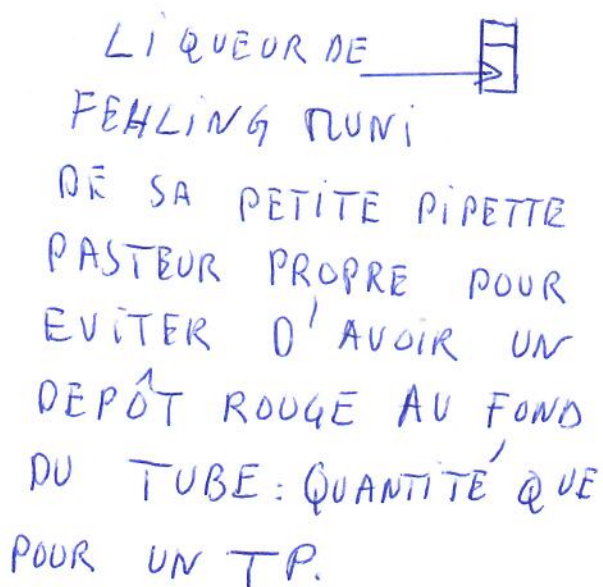 LIQUEUR DE
FEHLING MUNI
DE SA PETITE PIPETTE
PASTEUR PROPRE POUR
EVITER D'AVOIR UN
DEPÔT ROUGE AU FOND
DU TUBE : QUANTITÉ QUE
POUR UN TP.